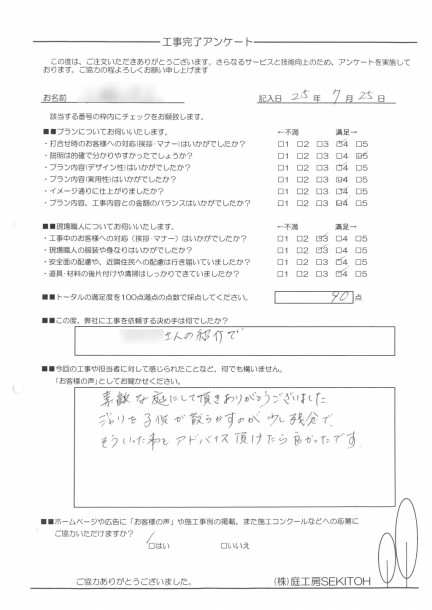 工事完了アンケート
この度は、ご注文いただきありがとうございます。さらなるサービスと技術向上のため、アンケートを実施して
おります。ご協力の程よろしくお願い申し上げます
お名前 記入日 25 年 7 月 25 日
該当する番号の枠内にチェックをお願致します。
■■プランについてお伺いいたします。 ←不満 満足→
・打合せ時のお客様への対応(挨拶・マナー)はいかがでしたか? □1 □2 □3 □4 □5
・説明は的確で分かりやすかったでしょうか? □1 □2 □3 □4 □5
・プラン内容(デザイン性)はいかがでしたか? □1 □2 □3 □4 □5
・プラン内容(実用性)はいかがでしたか? □1 □2 □3 □4 □5
・イメージ通りに仕上がりましたか? □1 □2 □3 □4 □5
・プラン内容、工事内容との金額のバランスはいかがでしたか? □1 □2 □3 □4 □5
■■現場職人についてお伺いいたします。 ←不満 満足→
・工事中のお客様への対応(挨拶・マナー)はいかがでしたか? □1 □2 □3 □4 □5
・現場職人の服装や身なりはいかがでしたか? □1 □2 □3 □4 □5
・安全面の配慮や、近隣住民への配慮は行き届いていましたか? □1 □2 □3 □4 □5
・道具・材料の後片付けや清掃はしっかりできていましたか? □1 □2 □3 □4 □5
■■トータルの満足度を100点満点の点数で採点してください。 90 点
■■この度、弊社に工事を依頼する決め手は何でしたか?
さんの紹介で
■■今回の工事や担当者に対して感じられたことなど、何でも構いません。
「お客様の声」としてお聞かせください。
素敵な庭にして頂きありがとうございました
じゃりを子供が散らかすのが少し残念で、
そういった事もアドバイス頂けたら良かったです。
■■ホームページや広告に「お客様の声」や施工事例の掲載、また施工コンクールなどへの応募に
ご協力いただけますか?
□はい □いいえ
ご協力ありがとうございました。 (株)庭工房SEKITOH